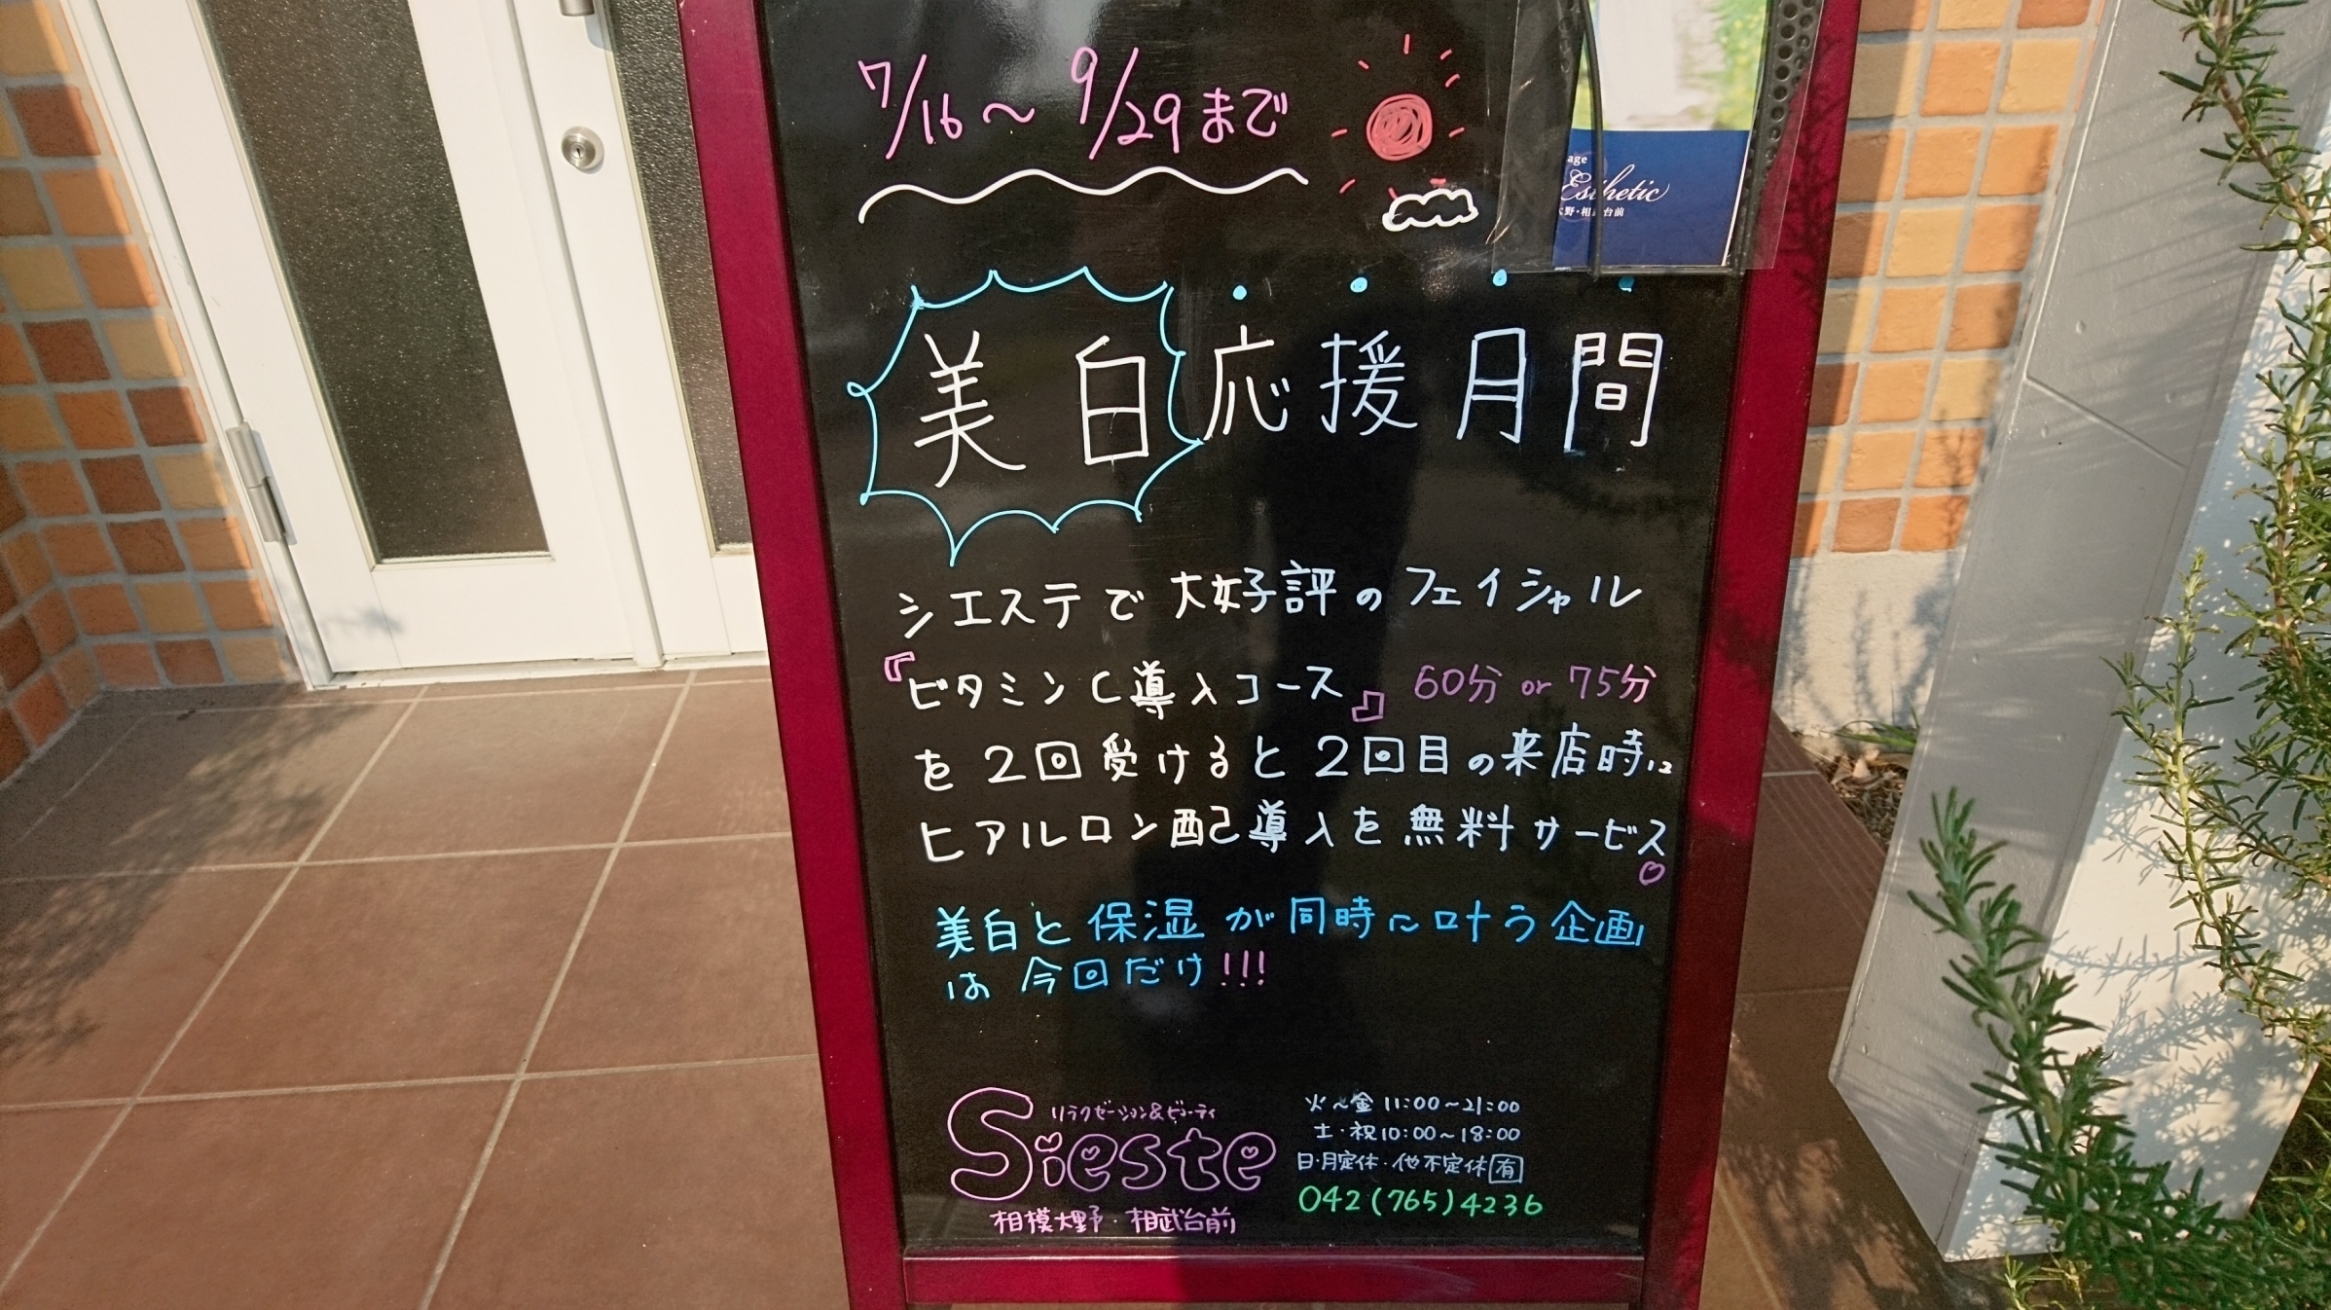 7/16～9/29まで
age
Esthetic
美白応援月間
シエステで大好評のフェイシャル
『ビタミンC導入コース』 60分 or 75分
を2回受けると2回目の来店時に
ヒアルロン酸導入を無料サービス。
美白と保湿が同時に叶う企画
は今回だけ!!!
リラクゼーション&ビューティ
Sieste
相模大野・相武台前
火～金 11:00～21:00
土・祝 10:00～18:00
日・月定休・他不定休有
042(765)4236